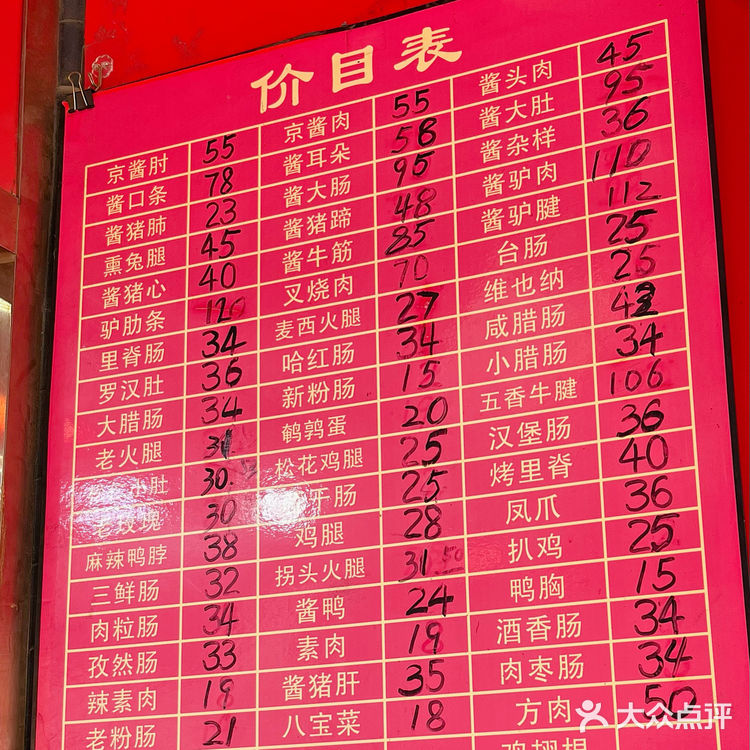 价目表
京酱肘 55 京酱肉 55 酱头肉 45
酱口条 78 酱耳朵 58 酱大肚 95
酱猪肺 23 酱大肠 95 酱杂样 36
熏兔腿 45 酱猪蹄 48 酱驴肉 110
酱猪心 40 酱牛筋 85 酱驴腱 112
驴肋条 120 叉烧肉 70 台肠 25
里脊肠 34 麦西火腿 27 维也纳 26
罗汉肚 36 哈红肠 34 咸腊肠
大腊肠 34 新粉肠 15 小腊肠 34
老火腿 鹌鹑蛋 20 五香牛腱 106
小肚 30 松花鸡腿 25 汉堡肠 36
老玫瑰 30 牛肠 25 烤里脊 40
麻辣鸭脖 38 鸡腿 28 凤爪 36
三鲜肠 32 拐头火腿 31.50 扒鸡 25
肉粒肠 34 酱鸭 24 鸭胸 15
孜然肠 33 素肉 19 酒香肠 34
辣素肉 19 酱猪肝 35 肉枣肠 34
老粉肠 21 八宝菜 18 方肉 50
鸡翅根
大众点评